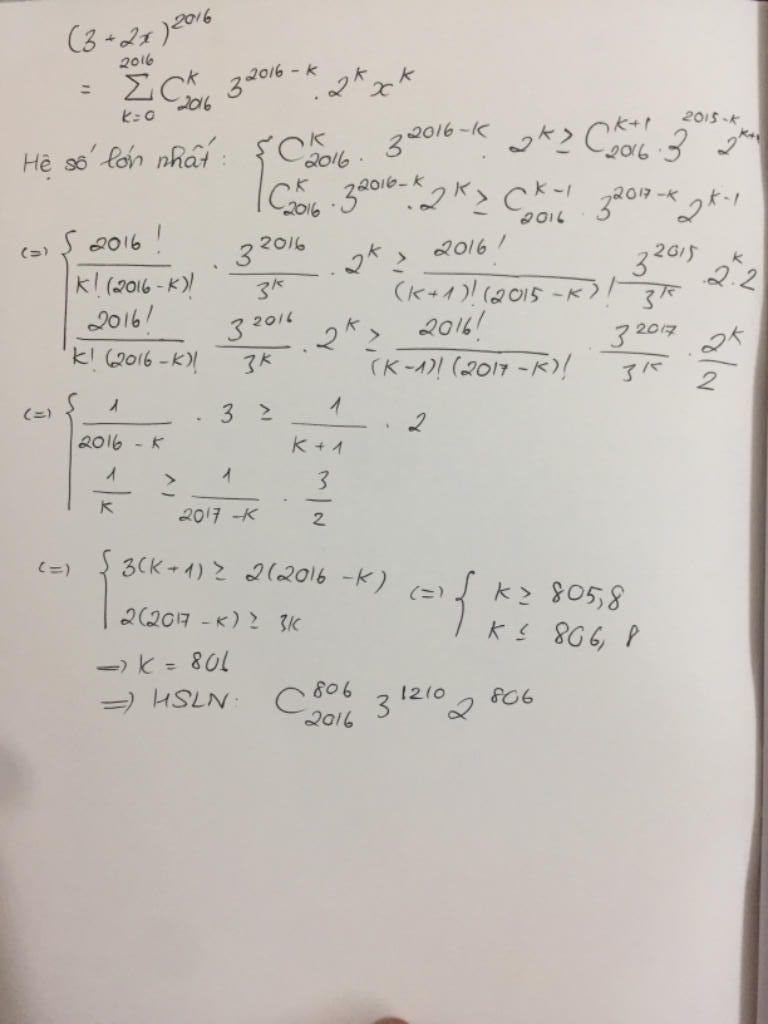 (3 + 2x)^2016
= ∑_{k=0}^{2016} C_{2016}^{k} 3^{2016-k} . 2^k x^k
Hệ số lớn nhất : { C_{2016}^{k} . 3^{2016-k} . 2^k ≥ C_{2016}^{k+1} . 3^{2015-k} 2^{k+1}
C_{2016}^{k} . 3^{2016-k} . 2^k ≥ C_{2016}^{k-1} . 3^{2017-k} 2^{k-1}
(=) { 2016!/(k!(2016-k)!) . 3^{2016}/3^k . 2^k ≥ 2016!/((k+1)!(2015-k)!) 3^{2015}/3^k . 2^k . 2
2016!/(k!(2016-k)!) 3^{2016}/3^k . 2^k ≥ 2016!/((k-1)!(2017-k)!) . 3^{2017}/3^k . 2^k/2
(=) { 1/(2016-k) . 3 ≥ 1/(k+1) . 2
1/k ≥ 1/(2017-k) . 3/2
(=) { 3(k+1) ≥ 2(2016-k) (=) { k ≥ 805,8
2(2017-k) ≥ 3k k ≤ 806,8
=> k = 806
=> HSLN: C_{2016}^{806} 3^{1210} 2^{806}